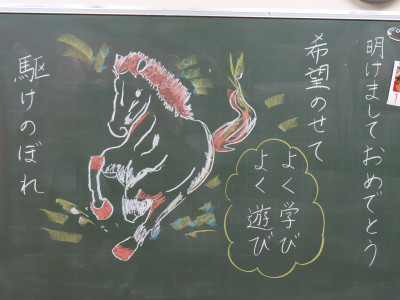 明けましておめでとう
希望のせて
よく学び
よく遊び
駆けのぼれ